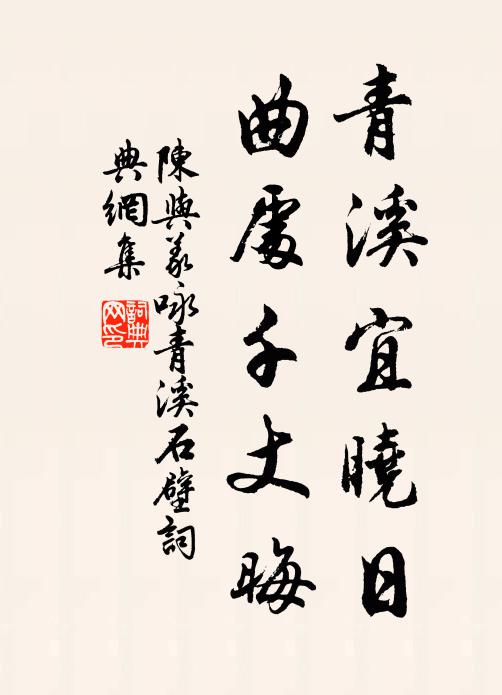 青溪宜曉日
曲處千丈晦
陳與義咏青溪石壁詞
典網集
詞典
網印